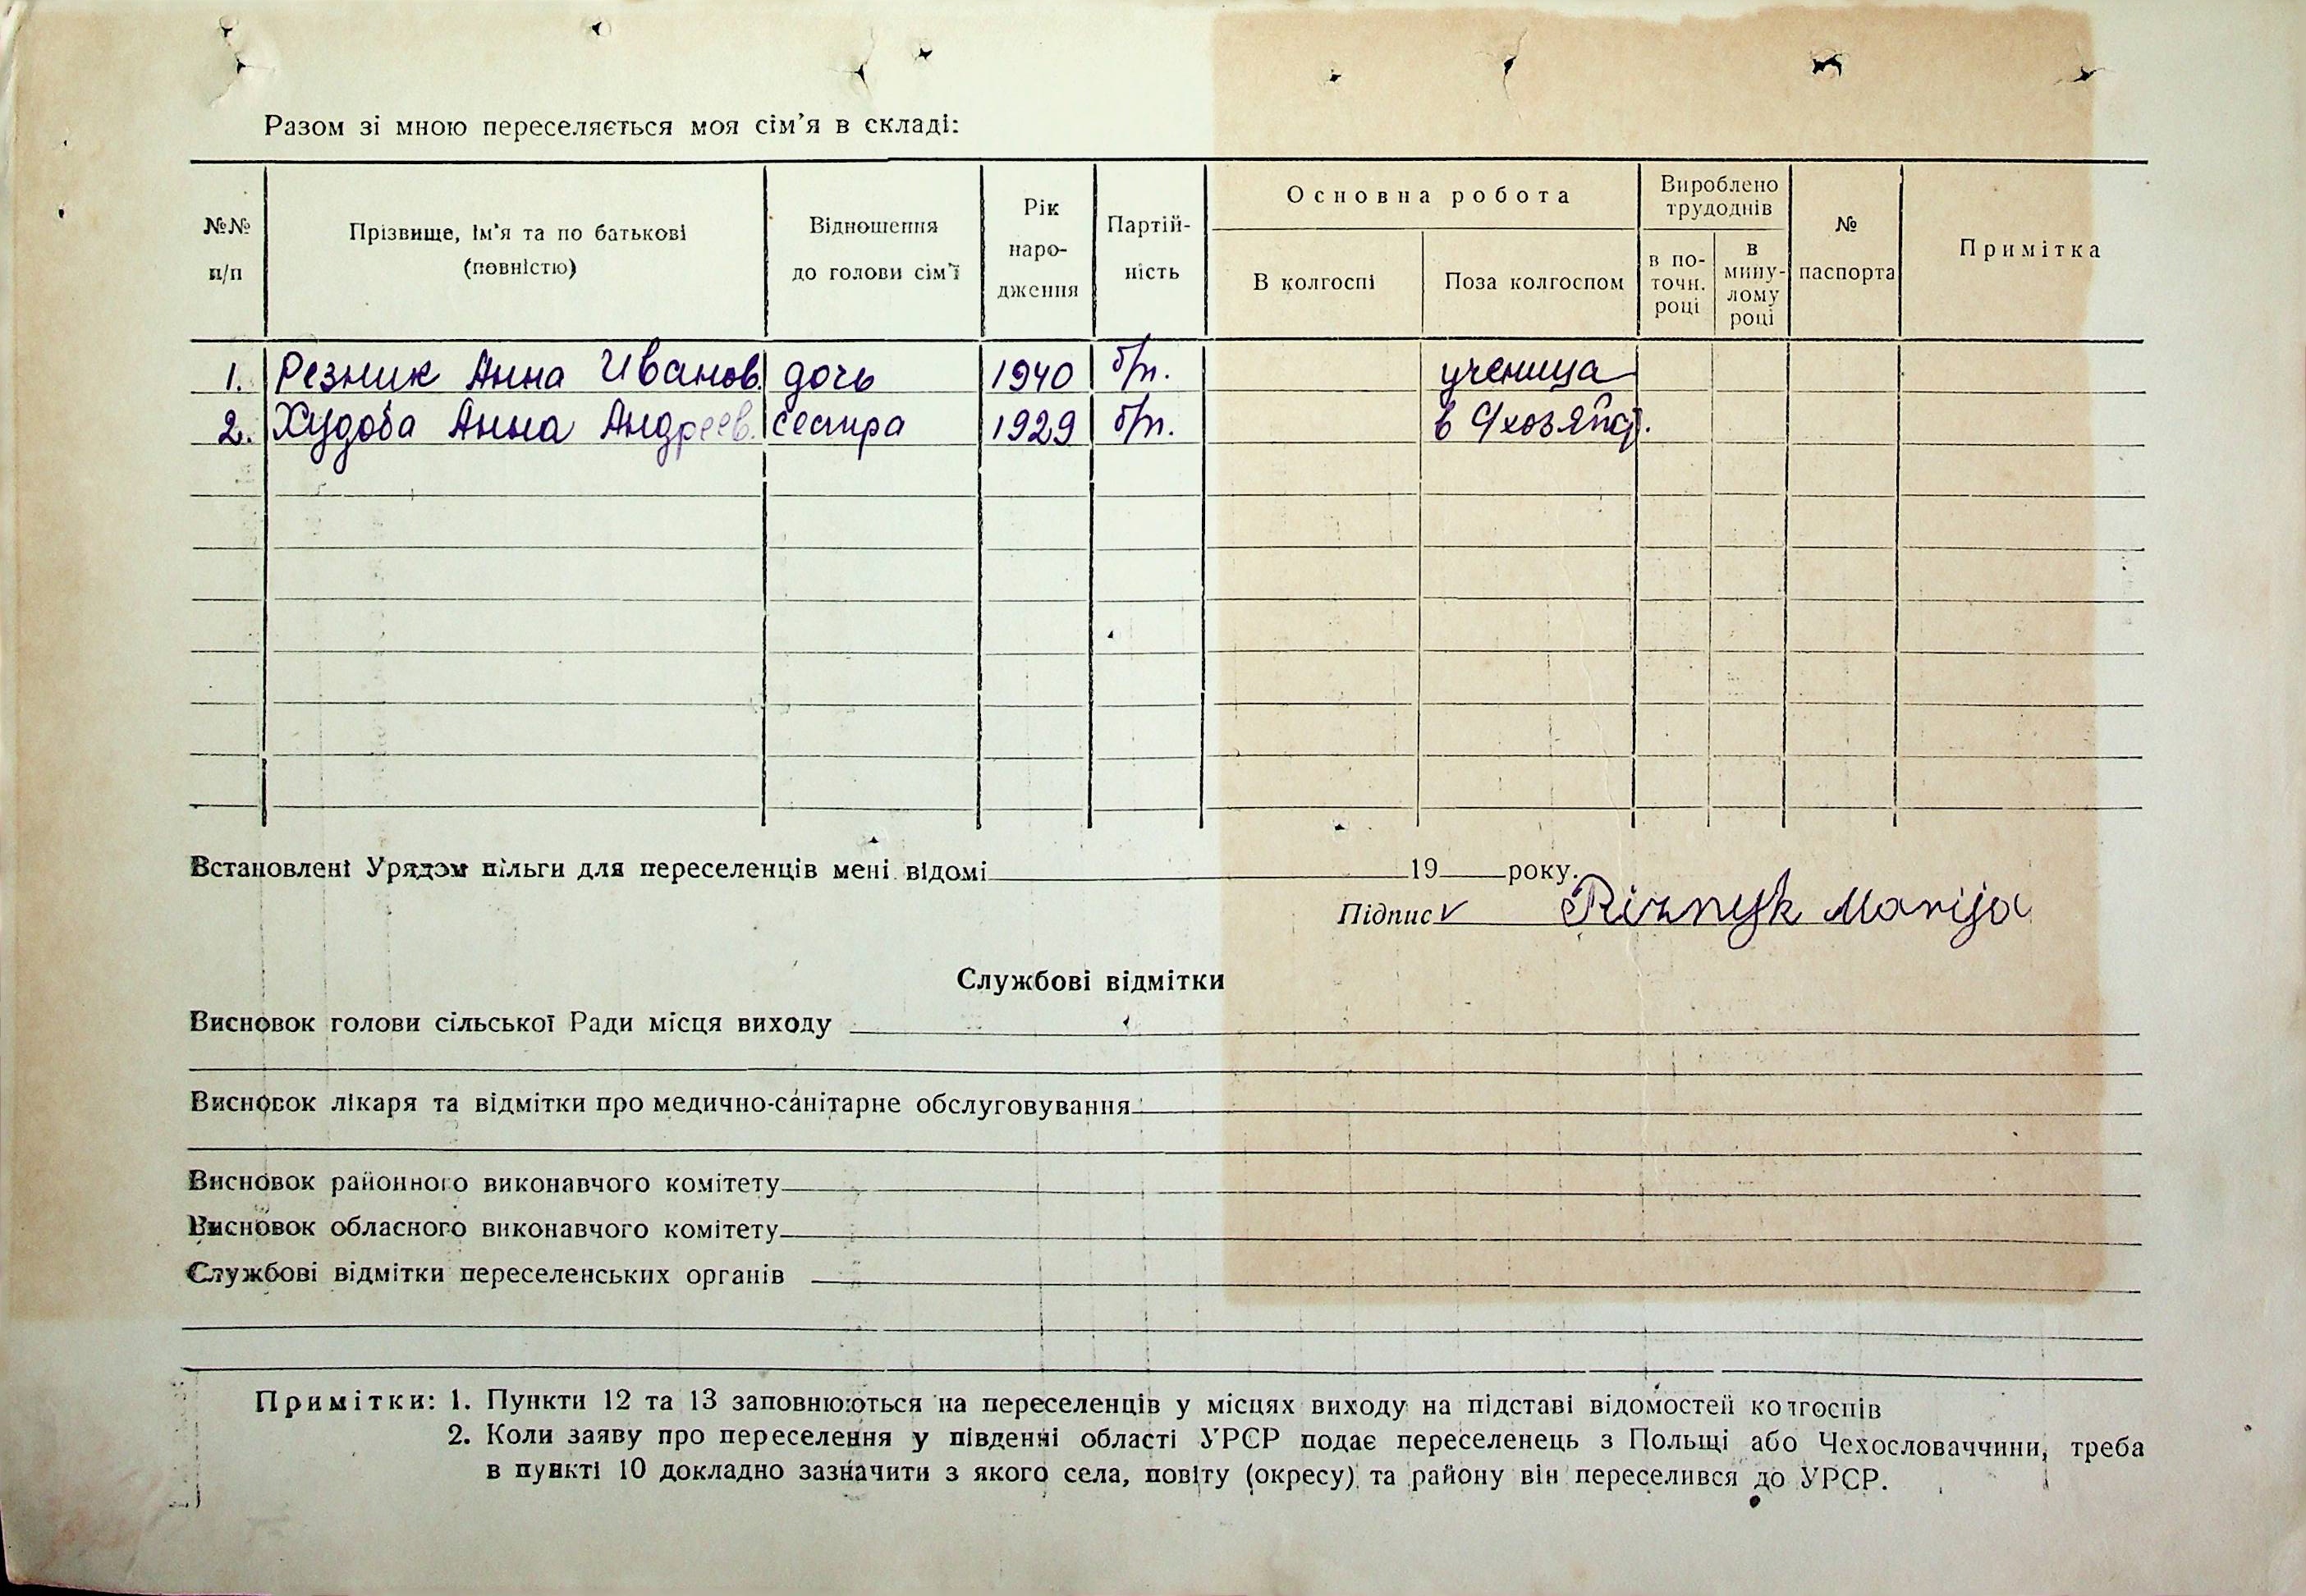 Разом зі мною переселяється моя сім'я в складі:
№№ п/п
Прізвище, ім'я та по батькові (повністю)
Відношення до голови сім'ї
Рік наро-дження
Партій-ність
Основна робота
В колгоспі
Поза колгоспом
Вироблено трудоднів
в по-точн. році
в мину-лому році
№ паспорта
Примітка
1. Резник Анна Иванов. дочь 1940 б/п. ученица
2. Худоба Анна Андреев. сестра 1929 б/п. в
Встановлені Урядом пільги для переселенців мені відомі 19 року.
Підпис v Riznyk Marija
Службові відмітки
Висновок голови сільської Ради місця виходу
Висновок лікаря та відмітки про медично-санітарне обслуговування
Висновок районного виконавчого комітету
Висновок обласного виконавчого комітету
Службові відмітки переселенських органів
Примітки: 1. Пункти 12 та 13 заповнюються на переселенців у місцях виходу на підставі відомостей колгоспів
2. Коли заяву про переселення у південні області УРСР подає переселенець з Польщі або Чехословаччини, треба
в пункті 10 докладно зазначити з якого села, повіту (окресу) та району він переселився до УРСР.